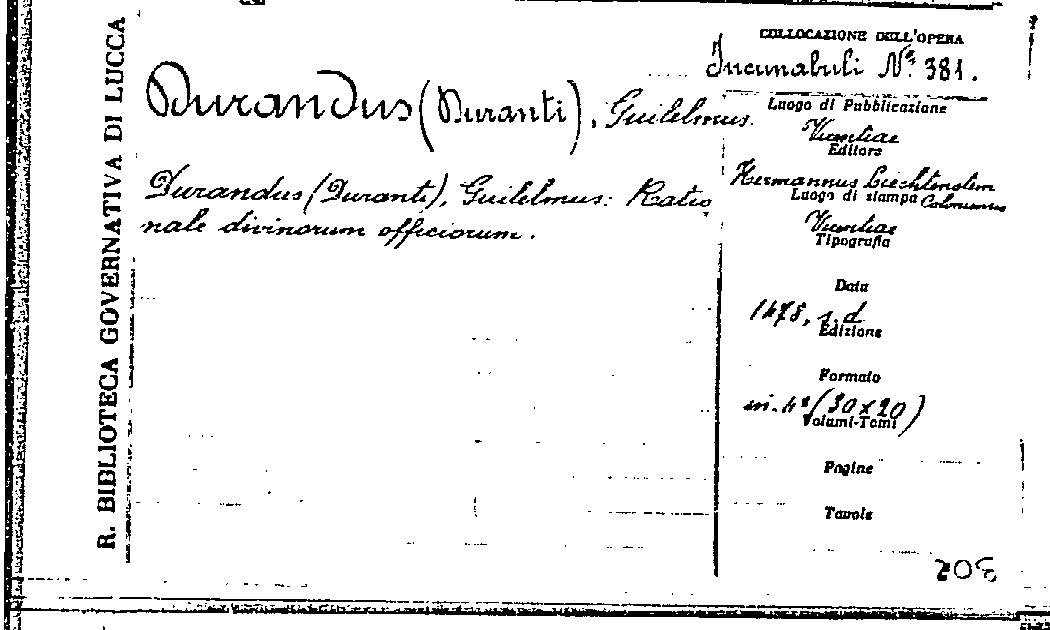 R. BIBLIOTECA GOVERNATIVA DI LUCCA
Durandus (Duranti), Guilelmus.
Durandus (Duranti), Guilelmus: Ratio
nale divinorum officiorum.
COLLOCAZIONE DELL'OPERA
Incunabuli Nº 381.
Luogo di Pubblicazione
Vicentiae
Editore
Hermannus Liechtenstein
Luogo di stampa
Vicentiae
Tipografia
Data
1478, s. d
Edizione
Formato
in. 4º (30 x 20)
Volumi-Tomi
Pagine
Tavole